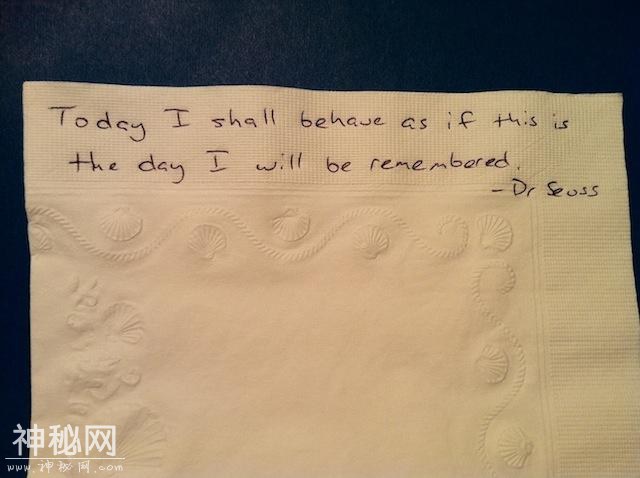 Today I shall behave as if this is
the day I will be remembered.
- Dr Seuss
神秘网
www.神秘网.com